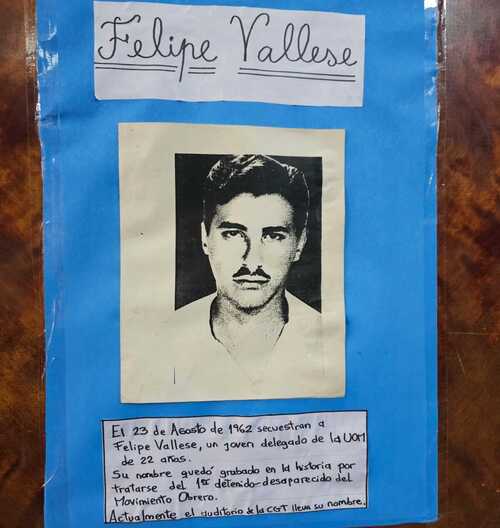 Felipe Vallese
El 23 de Agosto de 1962 secuestran a
Felipe Vallese, un joven delegado de la UOM
de 22 años.
Su nombre quedó grabado en la historia por
tratarse del 1er detenido-desaparecido del
Movimiento Obrero.
Actualmente el auditorio de la CGT lleva su nombre.